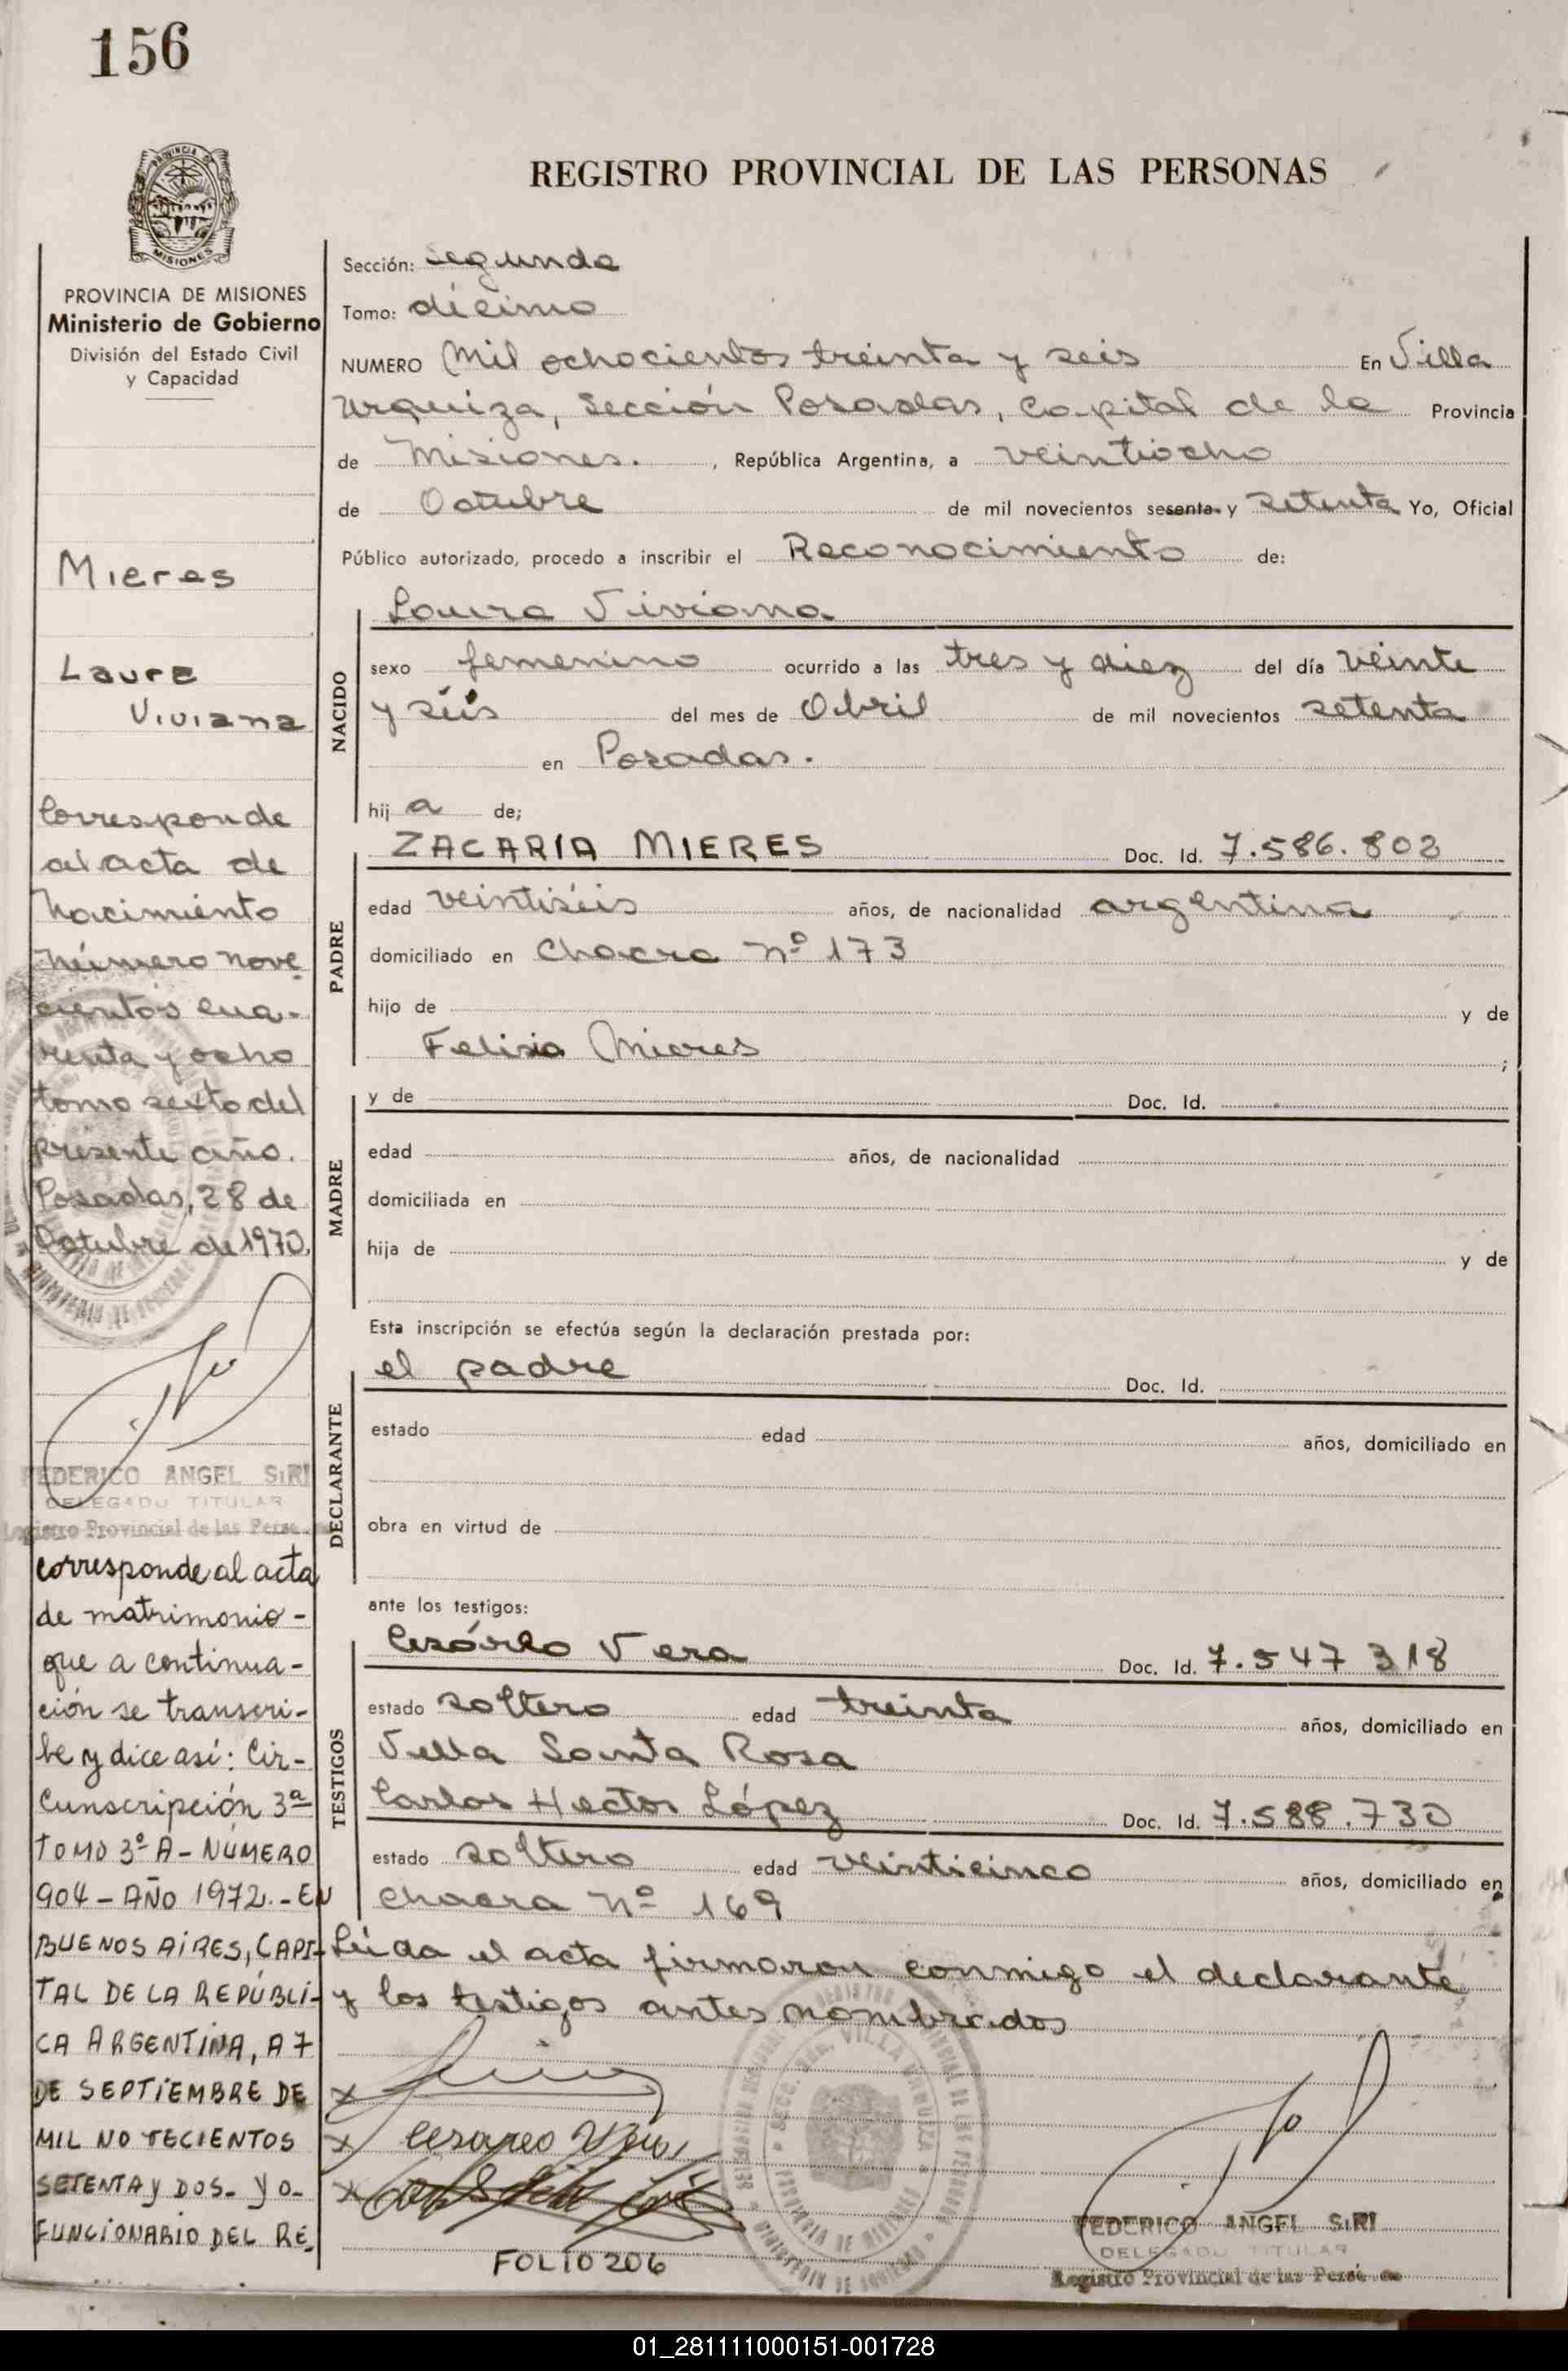 156
PROVINCIA DE
MISIONES
PROVINCIA DE MISIONES
Ministerio de Gobierno
División del Estado Civil
y Capacidad
Mieres
Laura
Viviana
Corresponde
al acta de
Nacimiento
número nove
cientos cua-
renta y ocho
tomo sexto del
presente año.
Posadas, 28 de
Octubre de 1970.
FEDERICO ANGEL SIRI
DELEGADO TITULAR
Registro Provincial de las Perso
corresponde al acta
de matrimonio -
que a continua-
ción se transcri-
be y dice así: Cir-
cunscripción 3ª
TOMO 3º A - NÚMERO
904 - AÑO 1972. - EN
BUENOS AIRES, CAPI-
TAL DE LA REPÚBLI-
CA ARGENTINA, A 7
DE SEPTIEMBRE DE
MIL NOVECIENTOS
SETENTA y DOS - yo -
FUNCIONARIO DEL RE-
REGISTRO PROVINCIAL DE LAS PERSONAS
Sección: Segunda
Tomo: décimo
NUMERO Mil ochocientos treinta y seis En Villa
Urquiza, Sección Posadas, Capital de la Provincia
de Misiones. , República Argentina, a veintiocho
de Octubre de mil novecientos sesenta y setenta Yo, Oficial
Público autorizado, procedo a inscribir el Reconocimiento de:
NACIDO
Laura Viviana
sexo femenino ocurrido a las tres y diez del día veinte
y séis del mes de Abril de mil novecientos setenta
en Posadas.
hij a de;
PADRE
ZACARIA MIERES Doc. Id. 7.586.802
edad veintiséis años, de nacionalidad argentina
domiciliado en Chacra Nº 173
hijo de y de
Felisia Mieres ;
MADRE
y de Doc. Id.
edad años, de nacionalidad
domiciliada en
hija de y de
Esta inscripción se efectúa según la declaración prestada por:
DECLARANTE
el padre Doc. Id.
estado edad años, domiciliado en
obra en virtud de
ante los testigos:
TESTIGOS
Cesáreo Vera Doc. Id. 7.547 318
estado soltero edad treinta años, domiciliado en
Villa Santa Rosa
Carlos Hector López Doc. Id. 7.588.730
estado soltero edad veinticinco años, domiciliado en
Chacra Nº 169
Leída el acta firmaron conmigo el declarante
y los testigos antes nombrados
x
x Cesareo Vera
x
FOLIO 206
SECC. 2da. VILLA URQUIZA
PROVINCIA DE MISIONES
FEDERICO ANGEL SIRI
DELEGADO TITULAR
Registro Provincial de las Perso
01_281111000151-001728